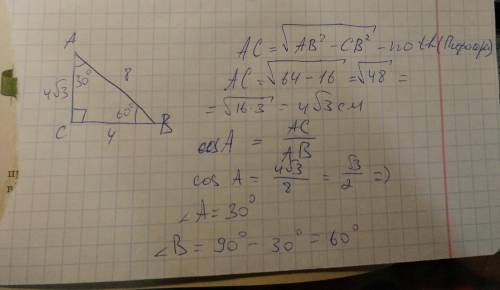 A
30°
8
4√3
60°
C
4
B
AC = √AB² - CB² - по th (Пифагора)
AC = √64 - 16 = √48 =
= √16·3 = 4√3 см
cos A = AC / AB
cos A = 4√3 / 8 = √3 / 2 =>
∠A = 30°
∠B = 90° - 30° = 60°